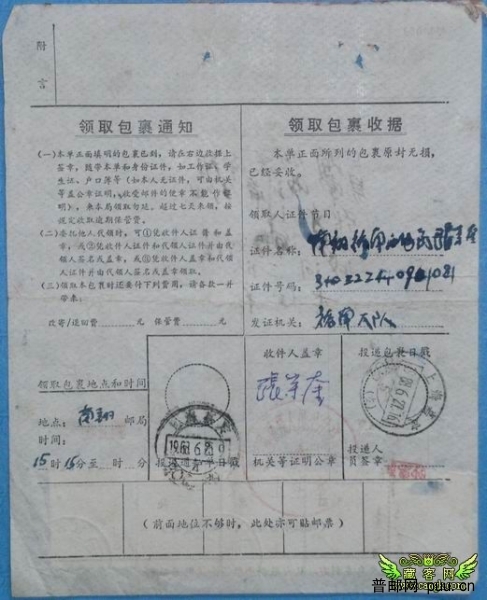 附言
领取包裹通知
(一)本单正面填明的包裹已到，请在右边收据上
签章，随带本单和身份证件，如工作证、学
生证、户口簿等(如本人无证件，可由机关
等盖公章证明，收受邮件的便章不能作证
明)，来本局领取勿延。超过七天来领，按
规定收取逾期保管费。
(二)委托他人代领时，可①凭收件人证件和盖
章，或②凭收件人证件和代领人证件并由代
领人签名或盖章，或③凭收件人盖章和代领
人证件并由代领人签名或盖章领取。
(三)领取本包裹时还要付下列费用，请各款一并
带来：
改寄/退回费 元 保管费 元
领取包裹地点和时间
地点： 南翔 邮局
时间：
15时15分至 时 分
投递通知单日戳
领取包裹收据
本单正面所列的包裹原封无损，
已经妥收。
领取人证件节目
证件名称：
证件号码：
发证机关： 大队
收件人盖章
机关等证明公章
投递包裹日戳
投递人
员签章
(前面地位不够时，此处亦可贴邮票)
藏客网
普邮网 puu.cn